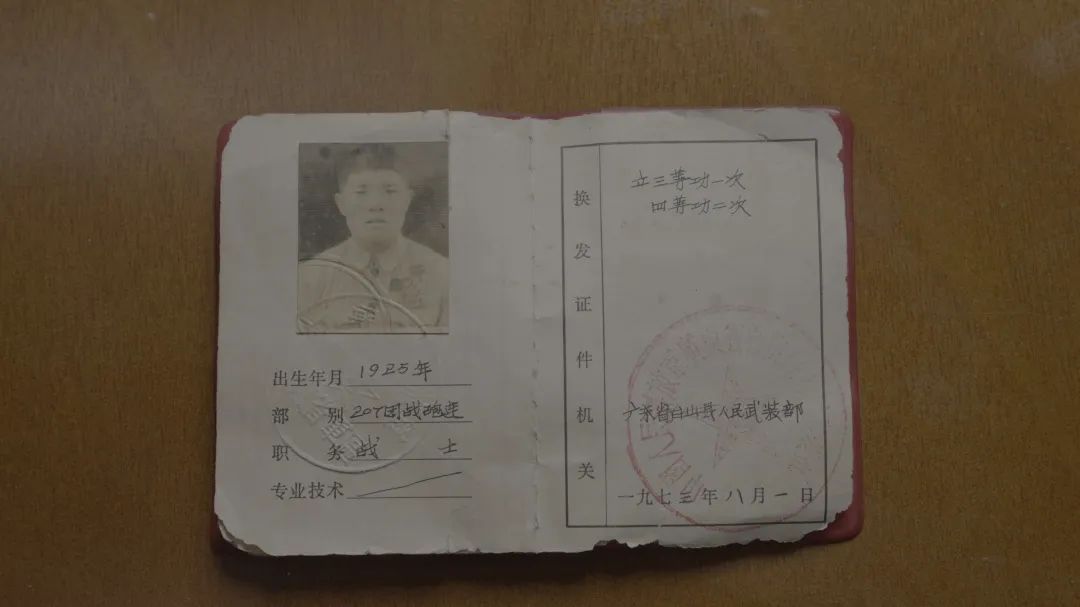 出生年月 1925年
部别 207团战炮连
职务 战士
专业技术
换发证件机关
立三等功一次
四等功二次
广东省台山县人民武装部
一九七三年八月一日